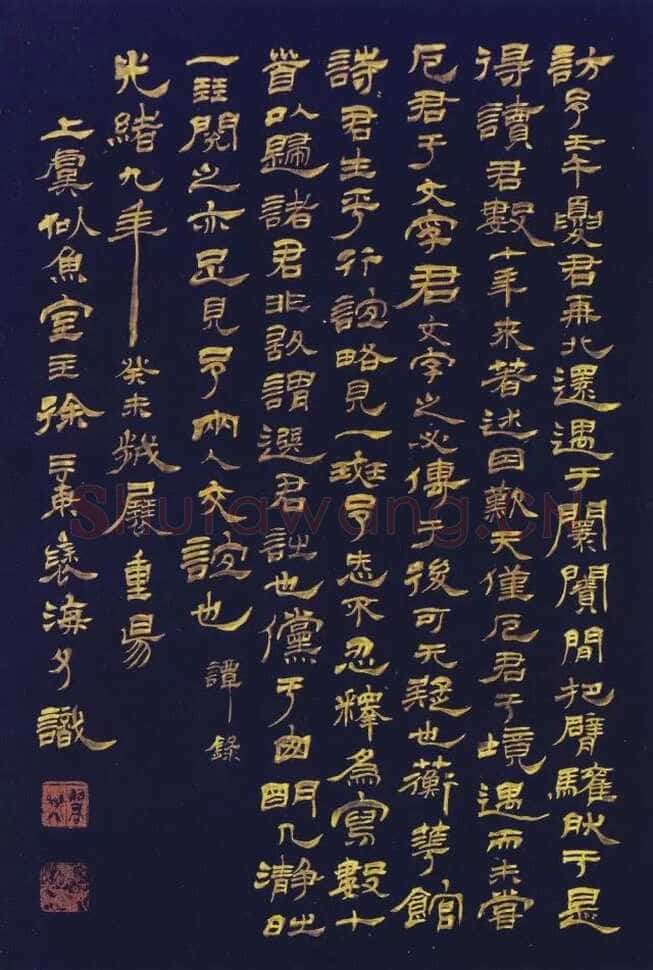 訪予壬午夏君再北還遇于闤闠間把臂驩肰于是
得讀君數十年來著述因歎天僅戹君于境遇而未嘗
戹君于文字君文字之必傳于後可无疑也蘅華館
詩君生平行誼略見一斑予不忍釋為寫數十
首以歸諸君非敢謂選君詩也儻于窗明几瀞時
一㠭閱之亦足見予兩人交誼也 譚錄
光緒九年癸未秋展重昜
上虞似魚室主徐三庚褎海父識
Shufawang.CN